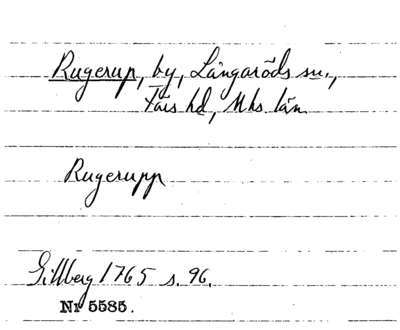 Rugerup, by, Långaröds sn.,
Färs hd, Mhs. län
Rugerupp
Gillberg 1765 s. 96.
Nr 5585.